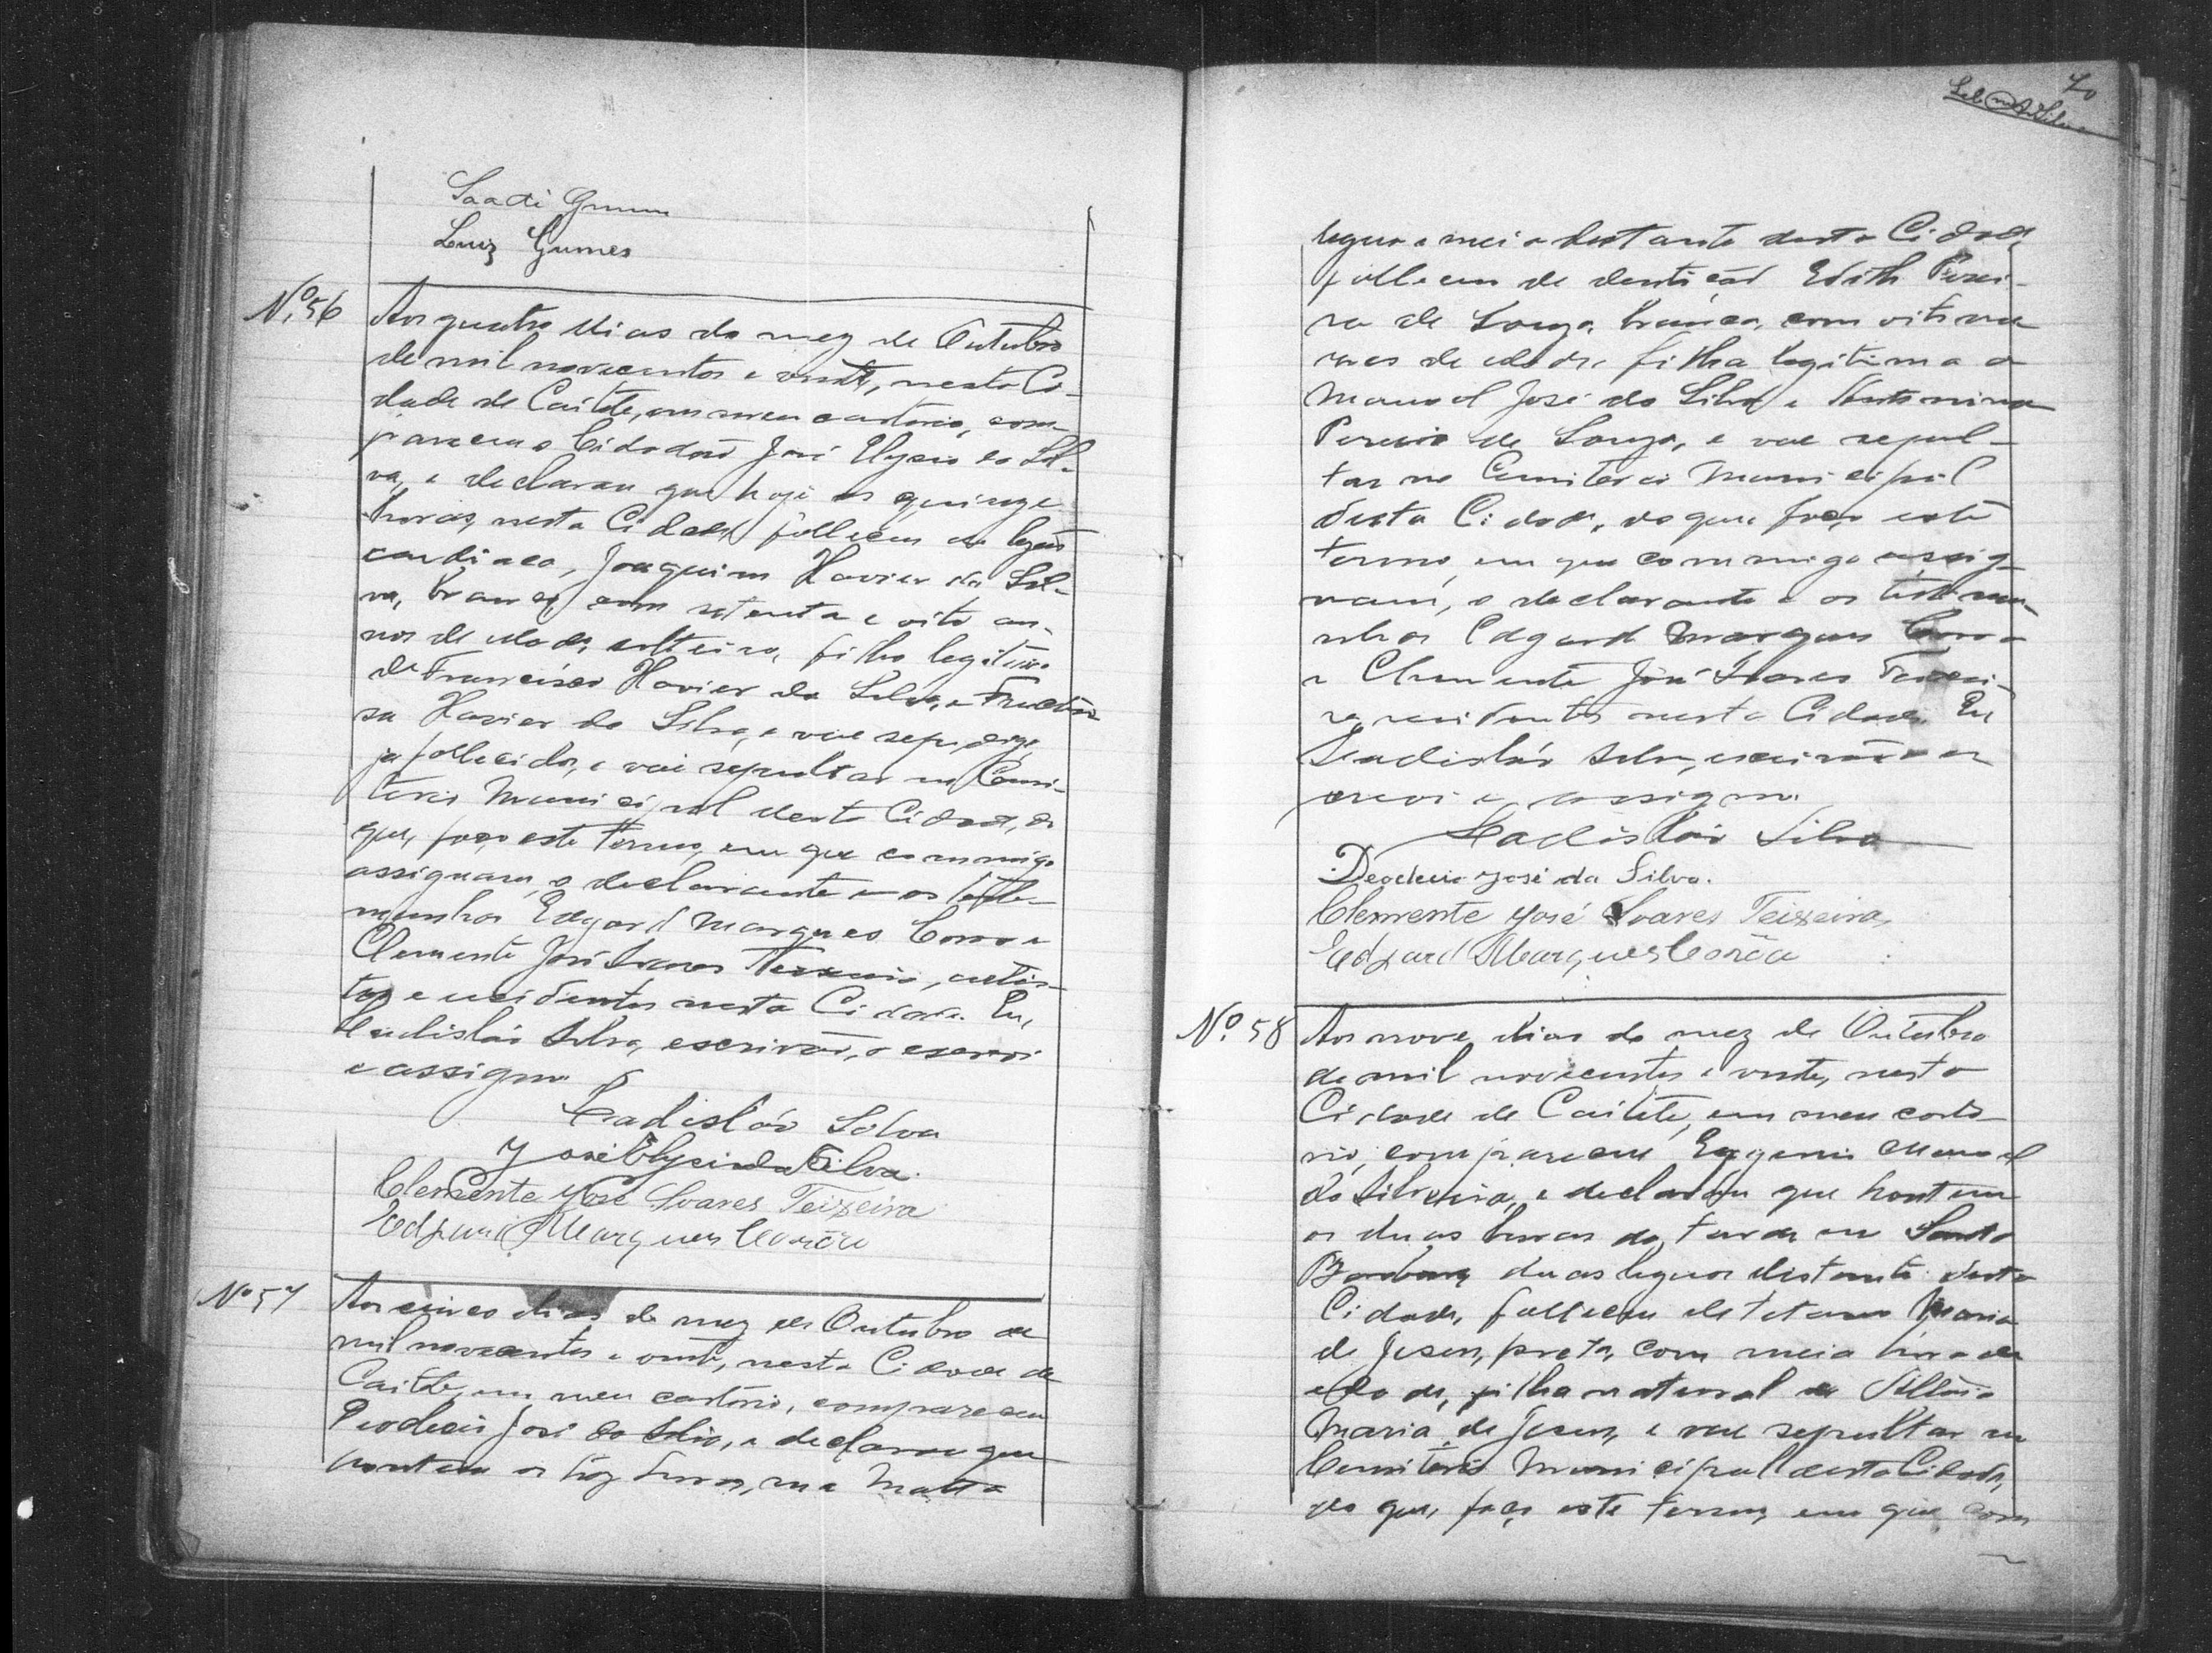 Saadi Gumes
Luiz Gumes
Nº 56
Aos quatro dias do mez de Outubro
de mil novecentos e vinte, nesta Ci-
dade de Caiteté, em meu cartorio, com-
pareceu o Cidadão José Elysio da Sil-
va, e declarou que hoje as quinze
horas, nesta Cidade, falleceu de lezão
cardiaca, Joaquim Xavier da Sil-
va, branco, com setenta e oito an-
nos de idade, solteiro, filho legitimo
de Francisco Xavier da Silva, e
sa Xavier da Silva, e vae sepu, digo,
ja fallecidos, e vai sepultar no Cemi-
terio Municipal desta Cidade, do
que, faço este termo, em que commigo
assignam, o declarante e as teste-
munhas Edgard Marques Corrêa e
Clemente José Soares Teixeira,
e residentes nesta Cidade. Eu,
Ladisláo Silva, escrivão, o escrevi
e assigno
Ladisláo Silva
José Elysio da Silva
Clemente José Soares Teixeira
Edgard Marques Corrêa
Nº 57
Aos cinco dias do mez de Outubro de
mil novecentos e vinte, nesta Cidade de
Caiteté, em meu cartorio, compareceu
Deoclecio José da Silva, e declarou que
hontem as horas, na Matta
70
legua e meia distante desta Cidade,
falleceu de dentição Edith Perei-
ra de Souza, branca, com oito me-
zes de idade, filha legitima de
Manoel José da Silva e
Pereira de Souza, e vae sepul-
tar no Cemiterio Municipal
desta Cidade, do que, faço este
termo, em que commigo assig-
nam, o declarante e as testemu-
nhas Edgard Marques Corrêa
e Clemente José Soares Teixei-
ra, residentes nesta Cidade. Eu
Ladisláo Silva, escrivão o es-
crevi e assigno.
Ladisláo Silva
Deoclecio José da Silva.
Clemente José Soares Teixeira,
Edgard Marques Corrêa
Nº 58
Aos nove dias do mez de Outubro
de mil novecentos e vinte, nesta
Cidade de Caiteté, em meu carto-
rio, compareceu Eugenio Manoel
da Silveira, e declarou que hontem
as duas horas da tarde em Santa
Barbara duas leguas distante desta
Cidade, falleceu de tetano Maria
de Jesus, preta, com meia hora de
idade, filha natural de
Maria de Jesus, e vae sepultar no
Cemiterio Municipal desta Cidade,
do que, faço este termo, em que com